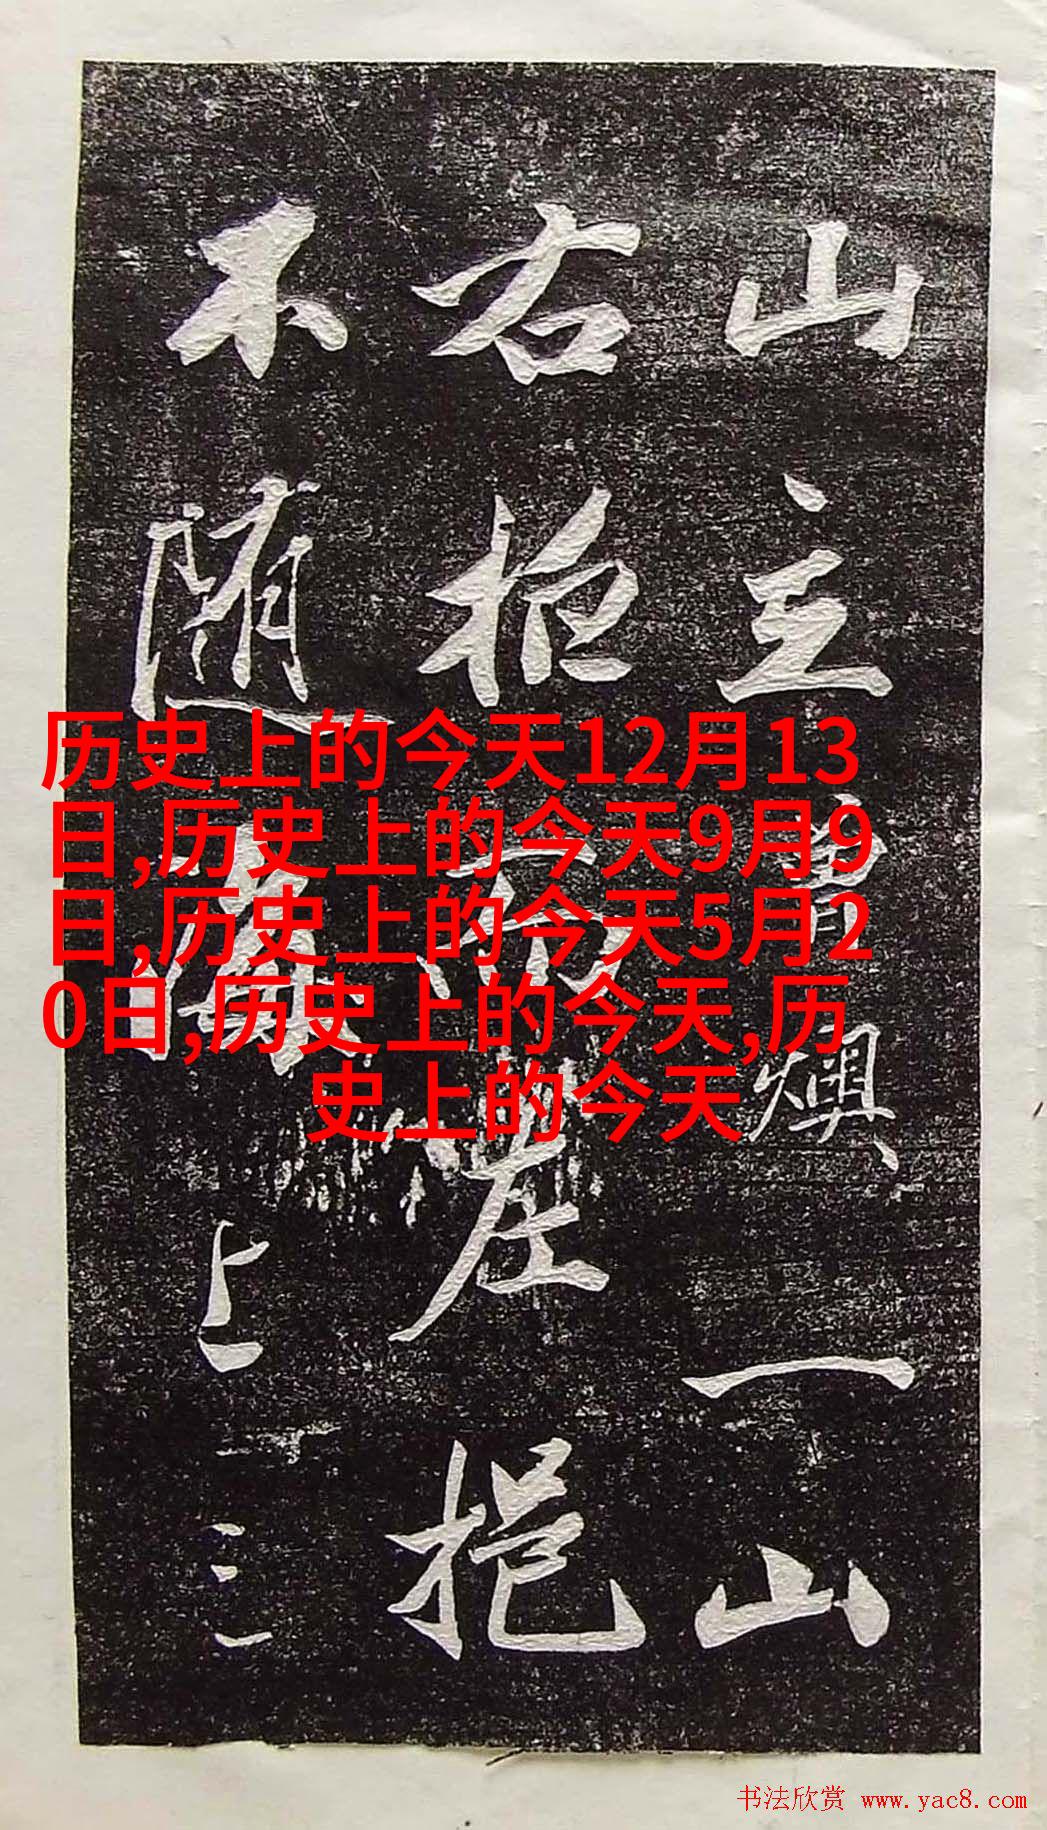 山主燠一山
右挹
不随上三
历史上的今天12月13
日,历史上的今天9月9
日,历史上的今天5月2
0日,历史上的今天,历
史上的今天
书法欣赏 www.yac8.com